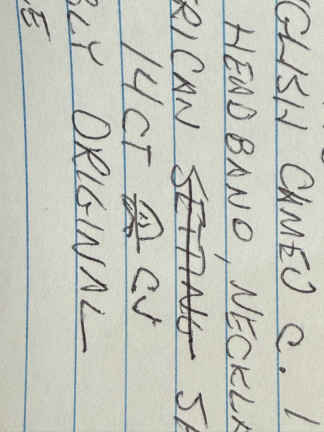 GLISH CAMEO C. 1
HEADBAND, NECKLA
RICAN SETTING
14CT
BLY ORIGINAL
E